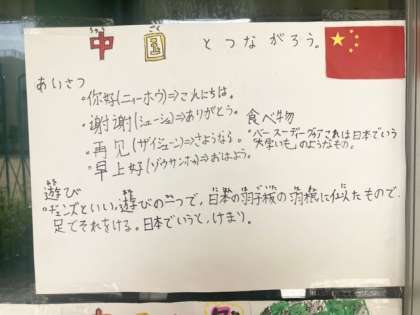 中国 とつながろう。
あいさつ
・你好(ニーホウ)⇒こんにちは。
・谢谢(シェーシェ)⇒ありがとう。
・再见(ザイジェーン)⇒さようなら。
・早上好(ゾウサンホゥ)⇒おはよう。
食べ物
・バースーディーグァこれは日本でいう
"大学いも"のようなもの。
遊び
・ヂェンズといい、遊びの一つで、日本の羽子板の羽根に似たもので、
足でそれをける。日本でいうと、けまり。